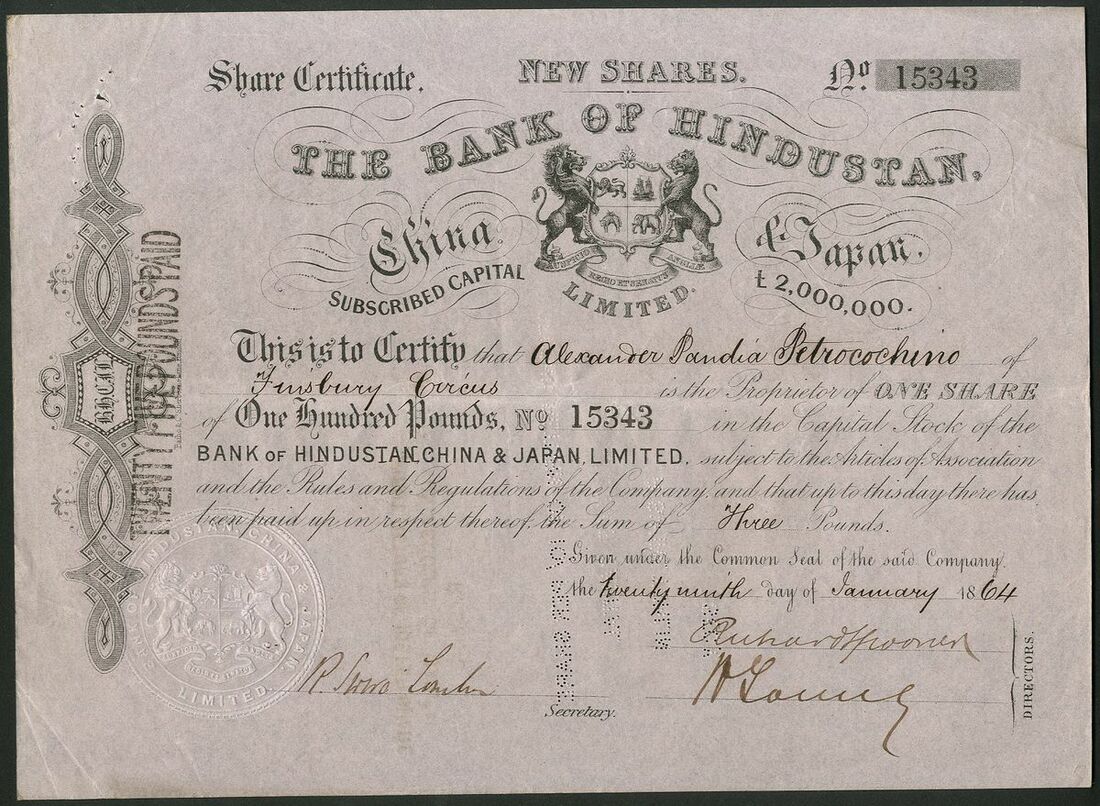 Share Certificate.
NEW SHARES.
No. 15343
THE BANK OF HINDUSTAN,
China & Japan.
SUBSCRIBED CAPITAL £2,000,000.
AUSPICIO REGIS ET SENATUS ANGLIÆ
LIMITED.
This is to Certify that Alexander Pandia Petrocochino of
Finsbury Circus is the Proprietor of ONE SHARE
of One Hundred Pounds, No 15343 in the Capital Stock of the
BANK OF HINDUSTAN, CHINA & JAPAN, LIMITED, subject to the Articles of Association
and the Rules and Regulations of the Company, and that up to this day there has
been paid up in respect thereof, the Sum of Three Pounds.
Given under the Common Seal of the said Company,
the twenty ninth day of January 1864
Richard Spooner
DIRECTORS.
Secretary.
TWENTY FIVE POUNDS PAID
BHCJL
BANK OF HINDUSTAN CHINA & JAPAN
LIMITED